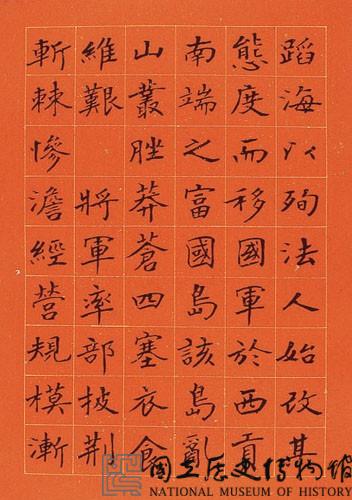 蹈海以殉法人始改其
態度而移國軍於西貢
南端之富國島該島亂
山叢脞莽蒼四塞衣食
維艱　將軍率部披荆
斬棘慘澹經營規模漸
國立歷史博物館
NATIONAL MUSEUM OF HISTORY